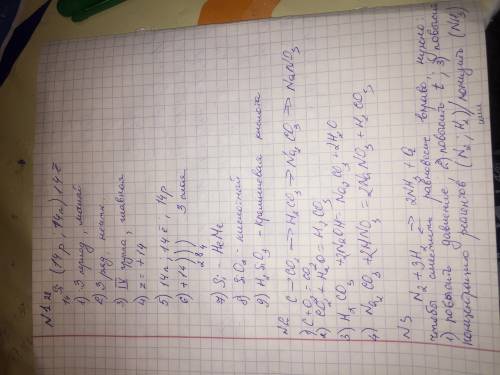 N1
²⁸₁₄Si (14p, 14n), 14ē
1) 3 период, малый
2) 3 ряд
3) IV группа, главная
4) z = +14
5) 14n, 14ē, 14p
6) +14)))) 3 слоя
2 8 4
7) Si - НеМе
8) SiO₂ - кислотный
9) H₂SiO₃ - кремниевая кислота
N2 C → CO₂ → H₂CO₃ → Na₂CO₃ → NaNO₃
1) C + O₂ = CO₂
2) CO₂ + H₂O = H₂CO₃
3) H₂CO₃ + 2NaOH = Na₂CO₃ + 2H₂O
4) Na₂CO₃ + 2HNO₃ = 2NaNO₃ + H₂CO₃
N3 N₂ + 3H₂ ⇄ 2NH₃ + Q
Чтобы сместить равновесие вправо, нужно:
1) повысить давление, 2) повысить t, 3) повысить
концентрацию реагентов (N₂; H₂) / понизить (NH₃)